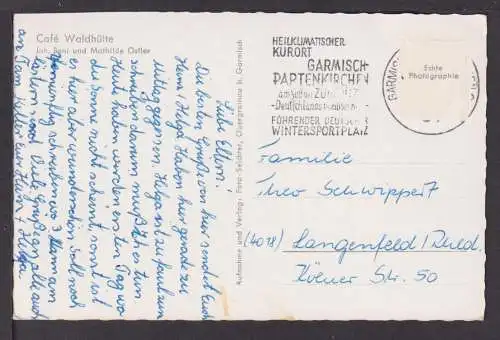 Café Waldhütte
Inh. Beni und Mathilde Ostler
Liebe Eltern!
Die besten Grüße von hier sendet Euch
Heinz + Helga. Haben hier grad zu
mittag gegessen. Helga ist zu faul zum
schreiben darum muß ich es tun.
Heute haben wir den ersten Tag wo
die Sonne nicht scheint, sonst ist
es hier aber wunderschön. Soll noch
schreiben was Hermann
Ostern Viele Grüße an alle auch
an Fam. Euer Heinz + Helga
Aufnahme und Verlag: Foto-Seiderer, Obergrainau b. Garmisch
HEILKLIMATISCHER
KURORT
GARMISCH-
PARTENKIRCHEN
am Fuß der ZUGSPITZE
Deutschlands
FÜHRENDER DEUTSCHER
WINTERSPORTPLATZ
GARMISCH
Echte
Photographie
Familie
Theo Schwippert
(4018) Langenfeld/Rhld.
Kölner Str. 50